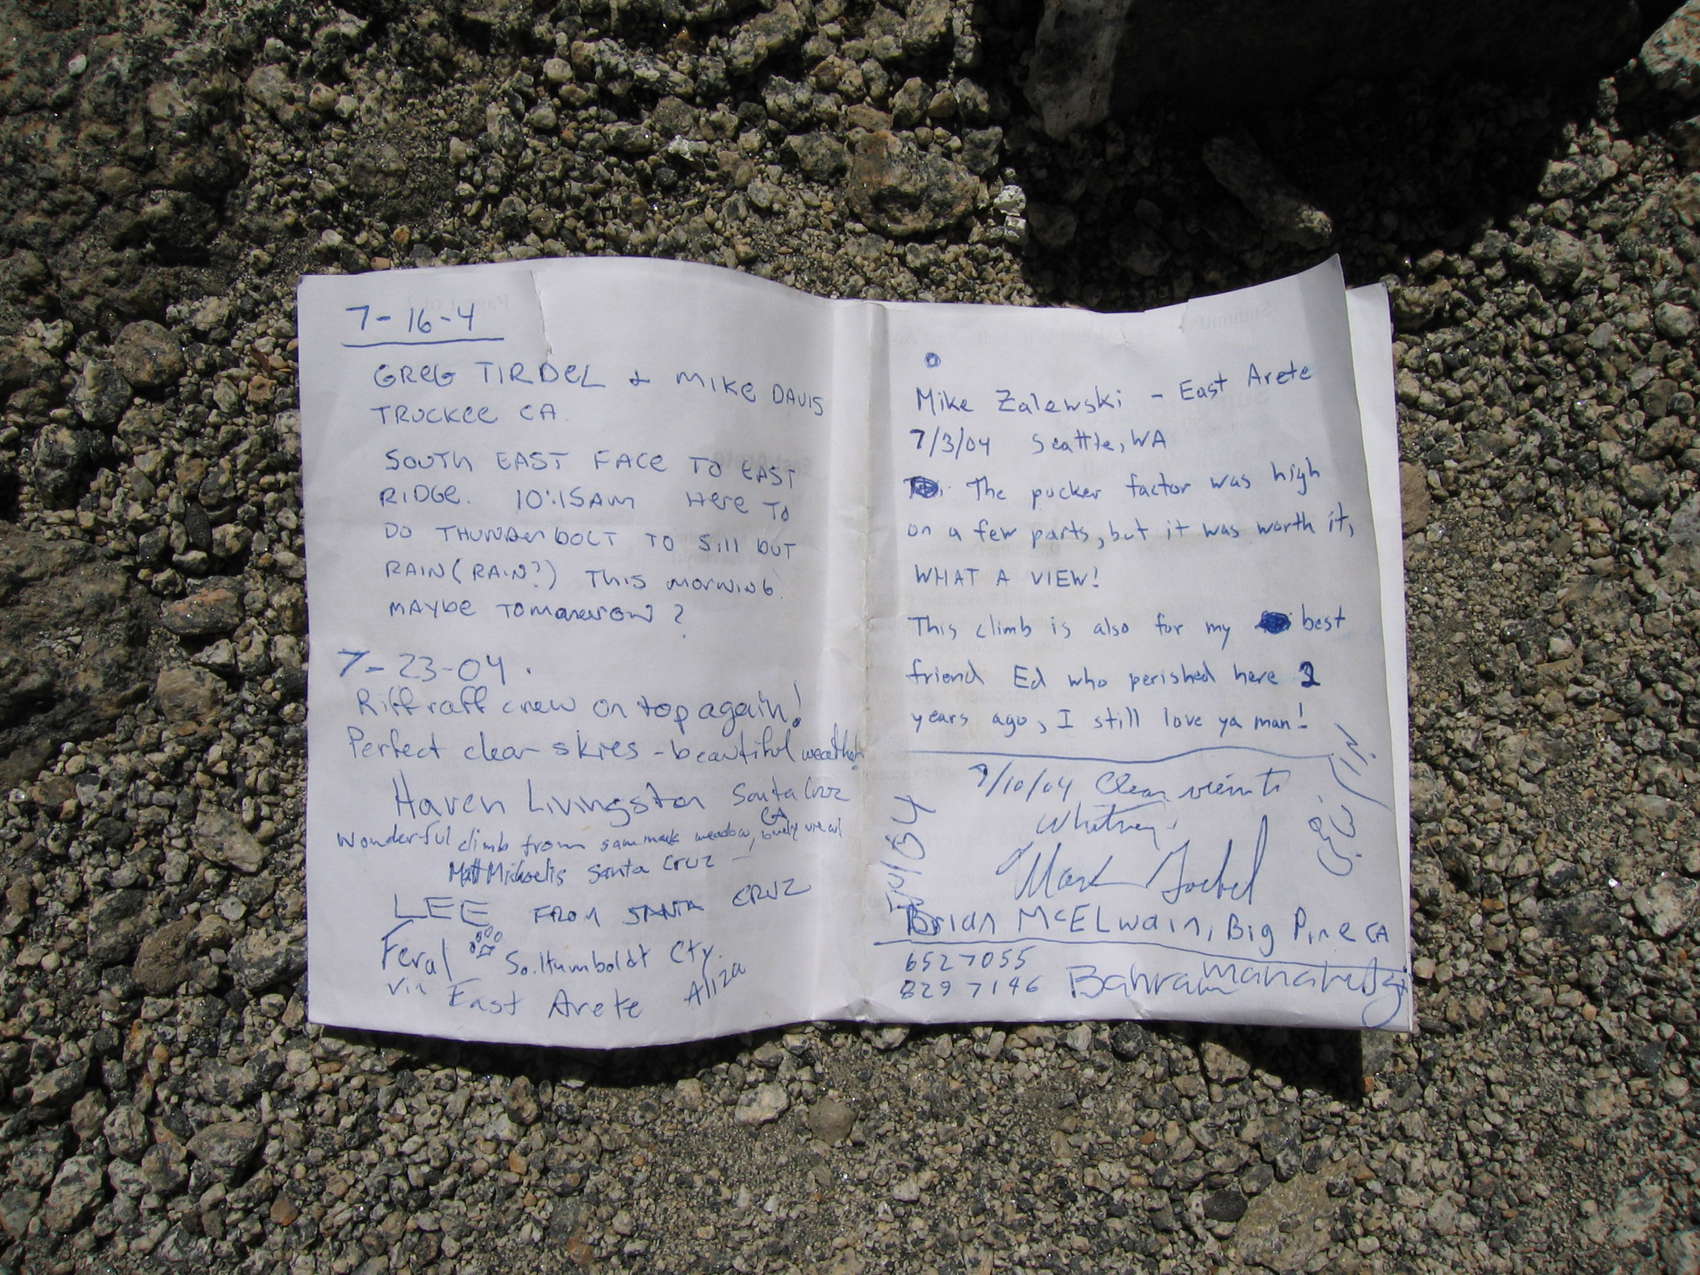 7-16-4
GREG TIRDEL & MIKE DAVIS
TRUCKEE CA.
SOUTH EAST FACE TO EAST
RIDGE. 10:15AM HERE TO
DO THUNDERBOLT TO SILL BUT
RAIN (RAIN?) THIS MORNING.
MAYBE TOMORROW?
7-23-04.
Riffraff crew on top again!
Perfect clear skies - beautiful weather
Haven Livingston Santa Cruz
CA
Wonderful climb from sammack meadow, lovely
Matt Michaelis Santa Cruz
LEE FROM SANTA CRUZ
Feral So. Humboldt Cty.
via East Arete Aliza
Mike Zalewski - East Arete
7/3/04 Seattle, WA
The pucker factor was high
on a few parts, but it was worth it,
WHAT A VIEW!
This climb is also for my best
friend Ed who perished here 2
years ago, I still love ya man!
7/10/04 Clear view to
Whitney.
Mark Goebel
Brian McElwain, Big Pine CA
6527055
8297146